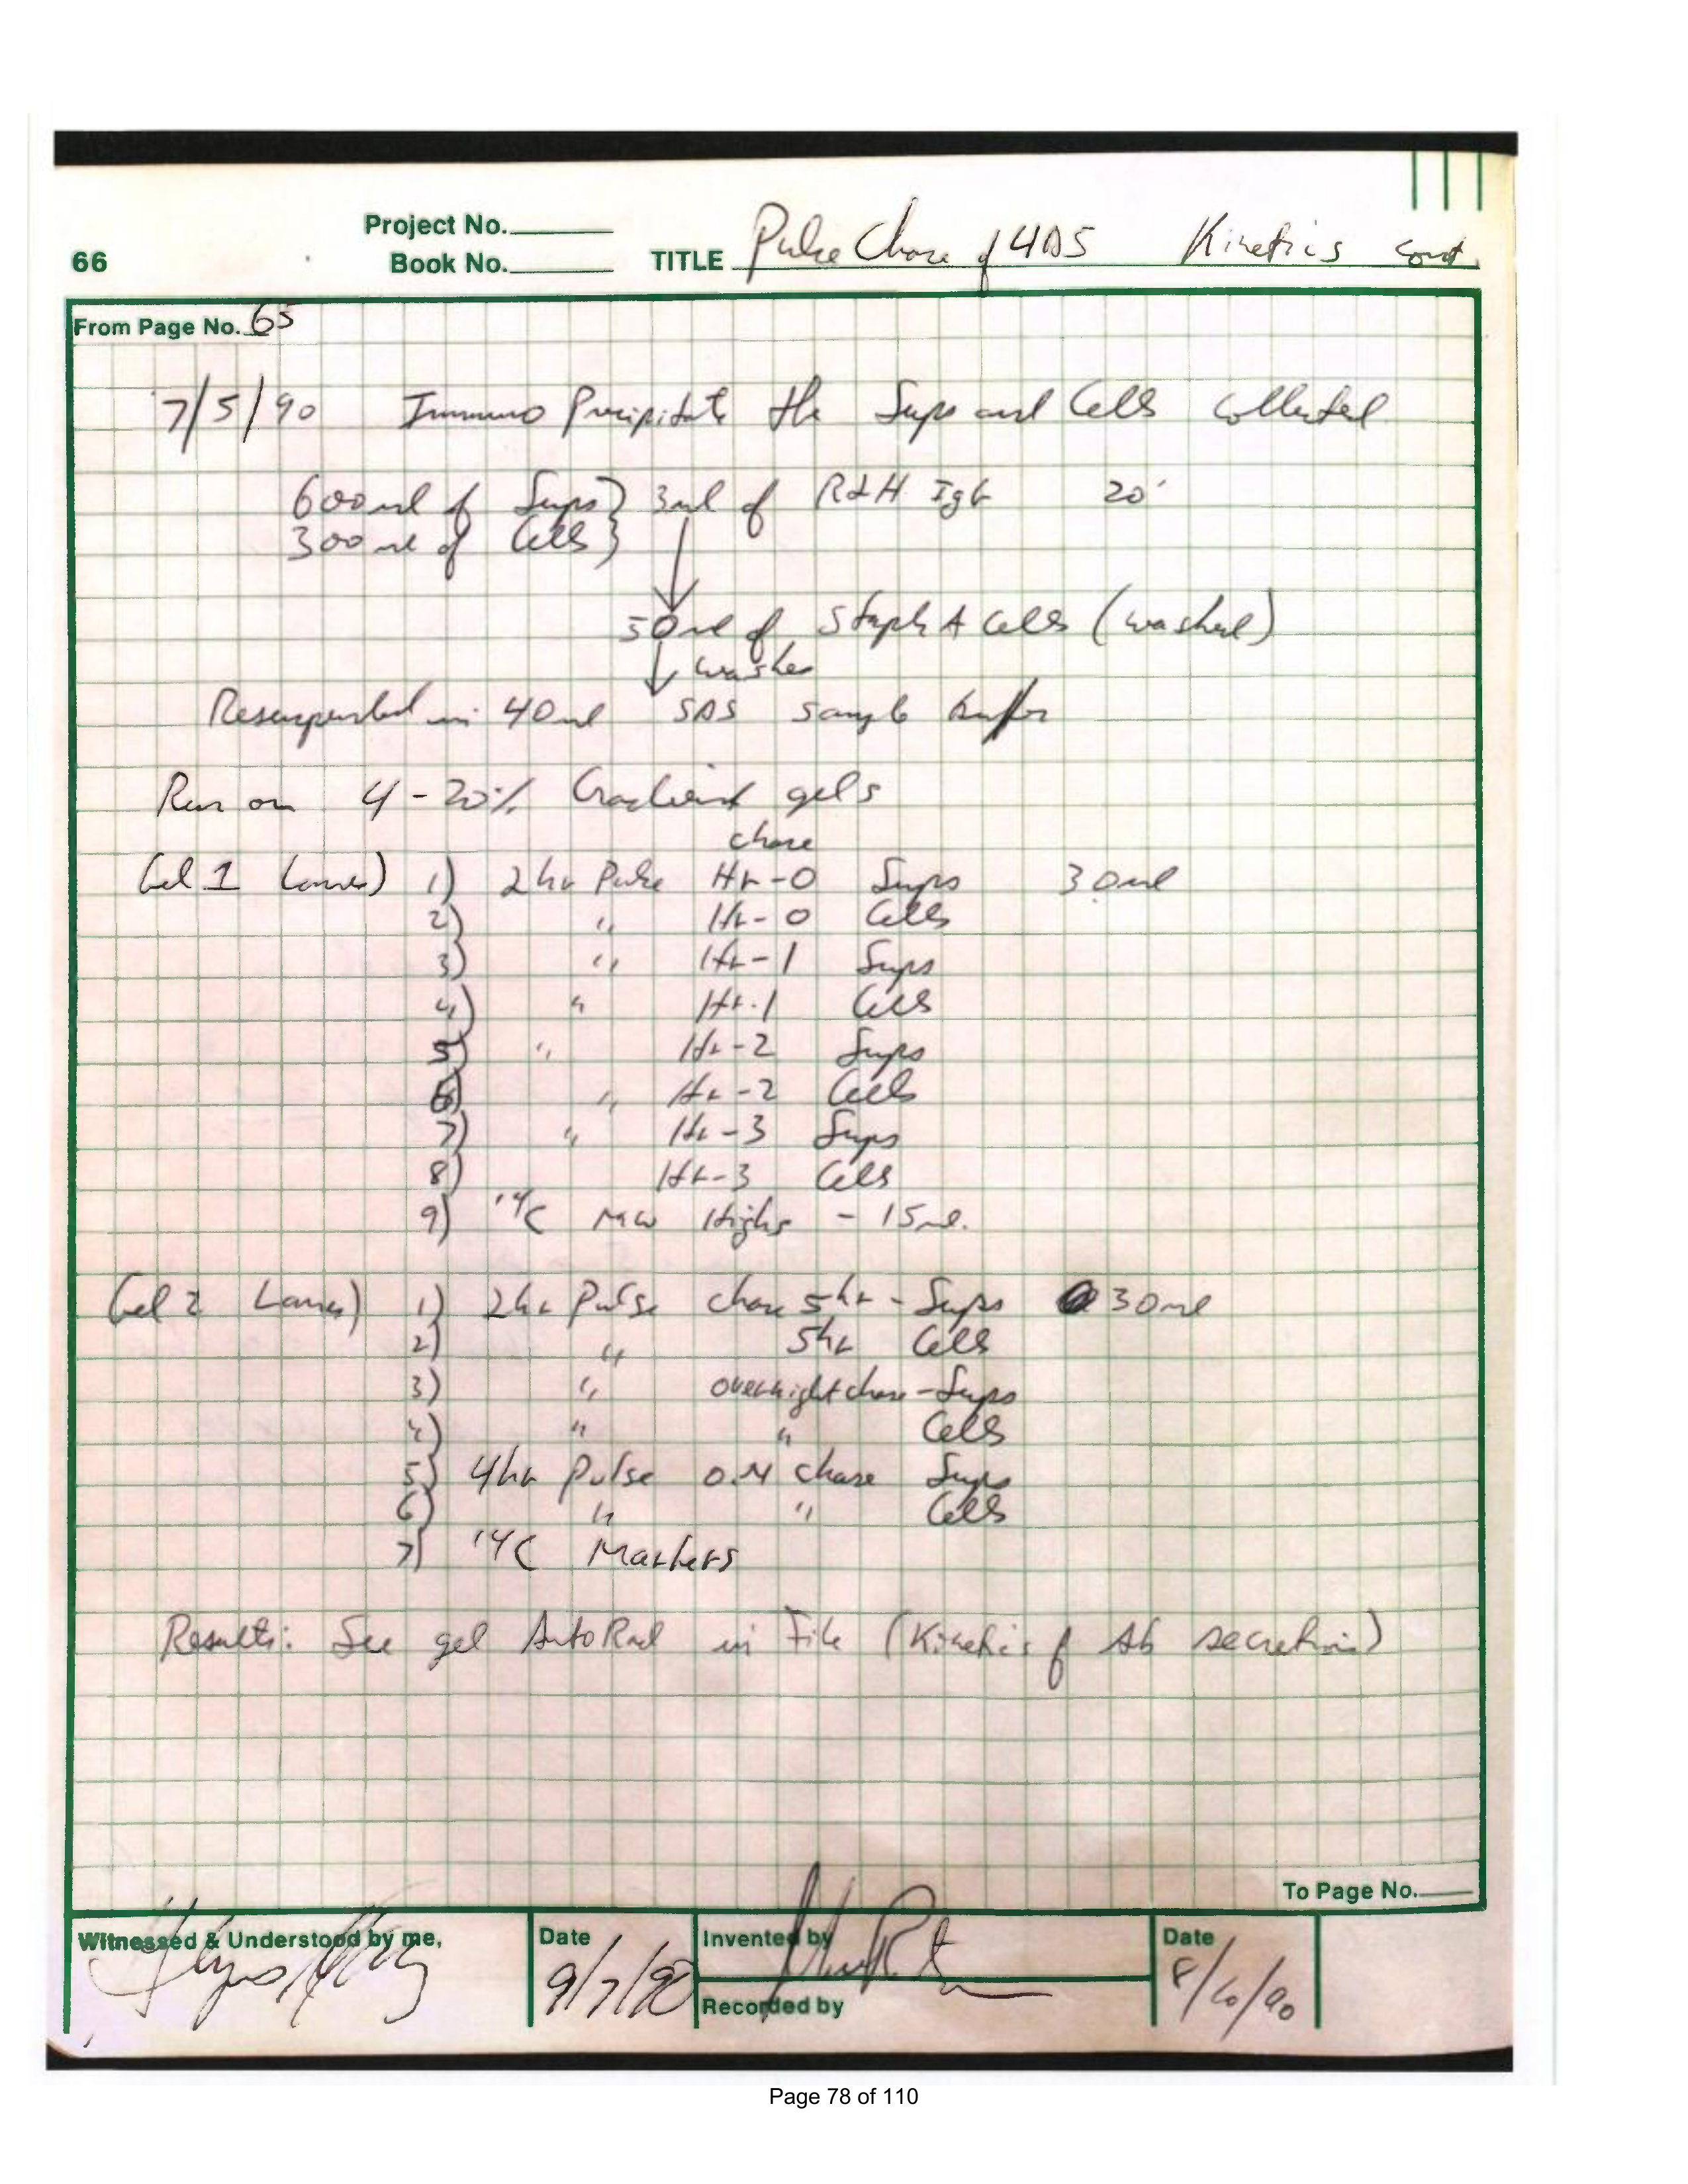 Project No.
66 Book No. TITLE Pulse Chase of 4D5 Kinetics cont
From Page No. 65
7/5/90 Immuno Precipitate the Sups and Cells collected
600ul of Sups } 3ul of RαH IgG 20'
300ul of Cells }
50ul of Staph A Cells (washed)
↓ washes
Resuspended in 40ul SDS sample buffer
Run on 4-20% Gradient gels
chase
Gel 1 Lanes) 1) 2hr Pulse Hr-0 Sups 30ul
2) " Hr-0 Cells
3) " Hr-1 Sups
4) " Hr-1 Cells
5) " Hr-2 Sups
6) " Hr-2 Cells
7) " Hr-3 Sups
8) Hr-3 Cells
9) 14C MW Highs - 15ul.
Gel 2 Lanes) 1) 2hr Pulse chase 5hr - Sups 30ul
2) " 5hr Cells
3) " overnight chase - Sups
4) " " Cells
5) 4hr Pulse O.N chase Sups
6) " " Cells
7) 14C Markers
Results: See gel AutoRad in File (Kinetics of Ab secretion)
To Page No.
Witnessed & Understood by me, Date Invented by Date
9/7/90 8/10/90
Recorded by
Page 78 of 110